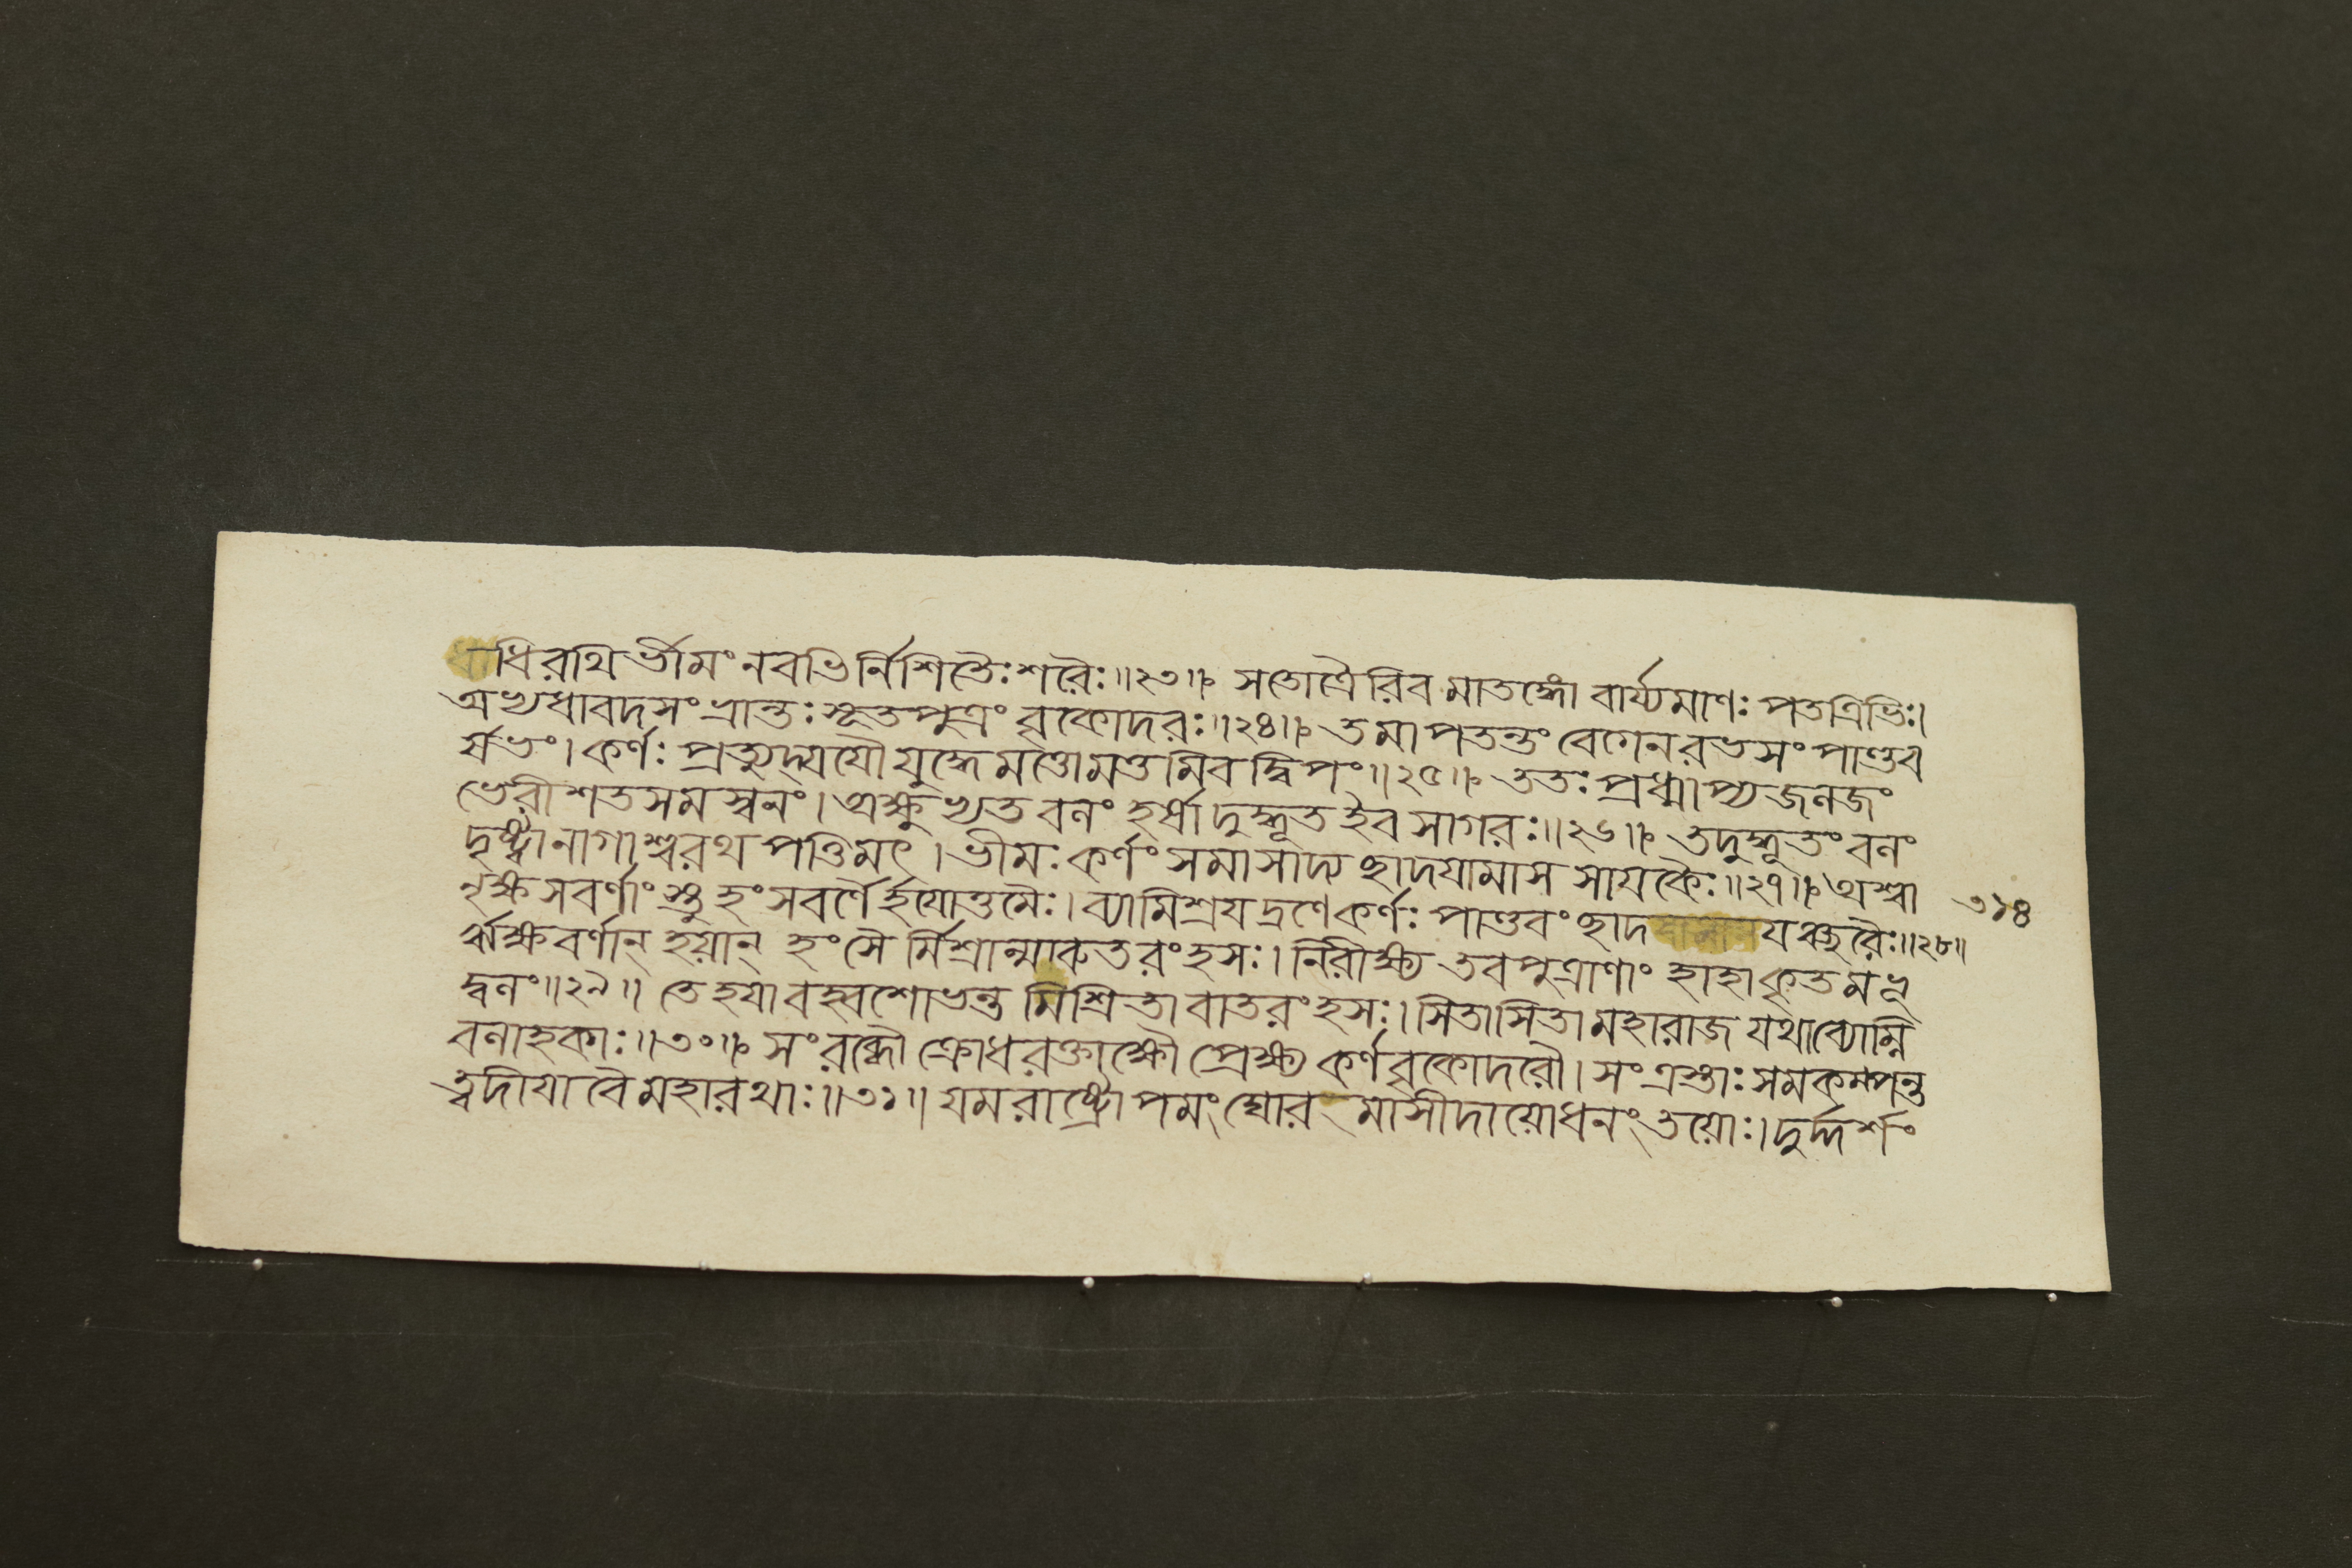 ধাধিরথি র্ভীমং নবভির্নিশিতৈঃ শরৈঃ॥২৩॥ সতোত্রৈরিব মাতঙ্গো বার্য্যমাণঃ পতত্রিভিঃ।
অভ্যধাবদসংভ্রান্তঃ সূতপুত্রং বৃকোদরঃ॥২৪॥ তমাপতন্তং বেগেন রভসং পাণ্ডব
র্ষভং। কর্ণঃ প্রত্যুদ্যযৌ যুদ্ধে মত্তোমত্তমিব দ্বিপং॥২৫॥ ততঃ প্রধ্মাপ্য জলজং
ভেরীশতসমস্বনং। অক্ষুভ্যত বলং হর্ষাদুদ্ধূত ইব সাগরঃ॥২৬॥ তদুদ্ধূতং বলং
দৃষ্ট্বা নাগাশ্বরথপত্তিমৎ। ভীমঃ কর্ণং সমাসাদ্য ছাদয়ামাস সায়কৈঃ॥২৭॥ অশ্বা
নৃক্ষসবর্ণাংস্তু হংসবর্ণৈর্হয়োত্তমৈঃ। ব্যামিশ্রয়দ্রণে কর্ণঃ পাণ্ডবং ছাদ যঞ্ছরৈঃ॥২৮॥
ঋক্ষবর্ণান্ হয়ান্ হংসৈ র্মিশ্রান্মারুতরংহসঃ। নিরীক্ষ্য তবপুত্রাণাং হাহাকৃতমভূ
দ্বলং॥২৯॥ তে হয়া বহ্বশোভন্ত মিশ্রিতা বাতরংহসঃ। সিতাসিতা মহারাজ যথা ব্যোম্নি
বলাহকাঃ॥৩০॥ সংরব্ধৌ ক্রোধরক্তাক্ষৌ প্রেক্ষ্য কর্ণবৃকোদরৌ। সংত্রস্তাঃ সমকম্পন্ত
ত্বদীয়া বৈ মহারথাঃ॥৩১॥ যমরাষ্ট্রোপমং ঘোর মাসীদায়োধনং তয়োঃ। দুর্দ্দর্শং
৩১৪